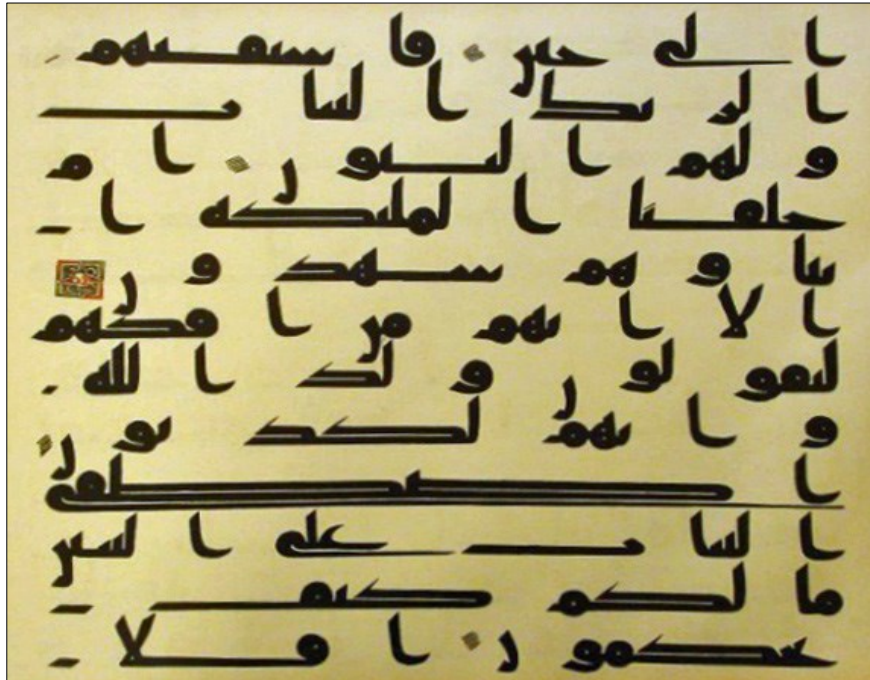 الى حين فاستفتهم
الربك البنات
ولهم البنون ام
خلقنا الملئكة ا
نثا وهم شهدون
الا انهم من افكهم
ليقولون ولد الله
وانهم لكذبون
اصطفى
البنات على البنين
ما لكم كيف
تحكمون افلا